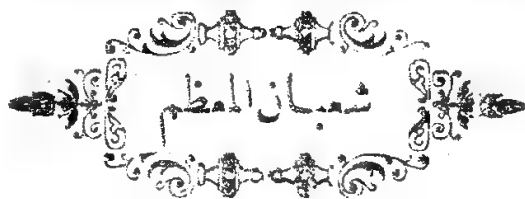 شعبان المعظم